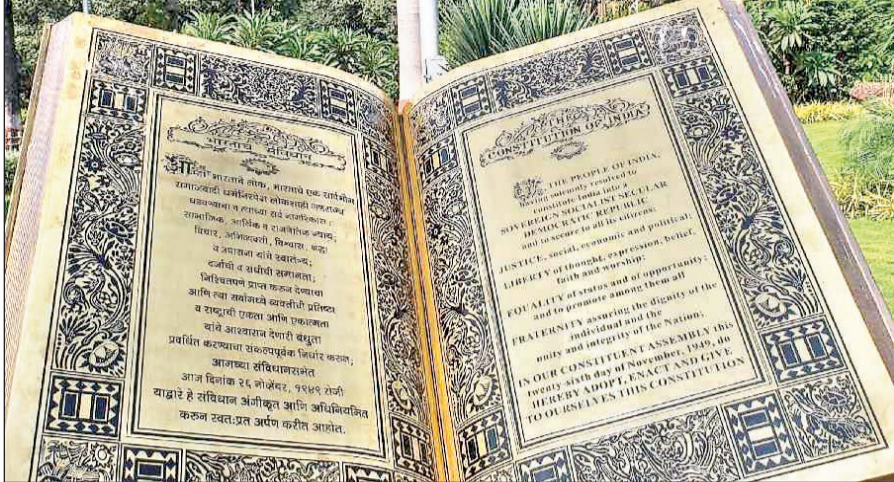 भारताचे संविधान
आम्ही भारताचे लोक, भारताचे एक सार्वभौम
समाजवादी धर्मनिरपेक्ष लोकशाही गणराज्य
घडवण्याचा व त्याच्या सर्व नागरिकांस;
सामाजिक, आर्थिक व राजनैतिक न्याय;
विचार, अभिव्यक्ती, विश्वास, श्रद्धा
व उपासना यांचे स्वातंत्र्य;
दर्जाची व संधीची समानता;
निश्चितपणे प्राप्त करून देण्याचा
आणि त्या सर्वांमध्ये व्यक्तीची प्रतिष्ठा
व राष्ट्राची एकता आणि एकात्मता
यांचे आश्वासन देणारी बंधुता
प्रवर्धित करण्याचा संकल्पपूर्वक निर्धार करून;
आमच्या संविधानसभेत
आज दिनांक २६ नोव्हेंबर, १९४९ रोजी
याद्वारे हे संविधान अंगीकृत आणि अधिनियमित
करून स्वतःप्रत अर्पण करीत आहोत.
CONSTITUTION OF INDIA
WE, THE PEOPLE OF INDIA,
having solemnly resolved to
constitute India into a
SOVEREIGN SOCIALIST SECULAR
DEMOCRATIC REPUBLIC
and to secure to all its citizens:
JUSTICE, social, economic and political;
LIBERTY of thought, expression, belief,
faith and worship;
EQUALITY of status and of opportunity;
and to promote among them all
FRATERNITY assuring the dignity of the
individual and the
unity and integrity of the Nation;
IN OUR CONSTITUENT ASSEMBLY this
twenty-sixth day of November, 1949, do
HEREBY ADOPT, ENACT AND GIVE
TO OURSELVES THIS CONSTITUTION